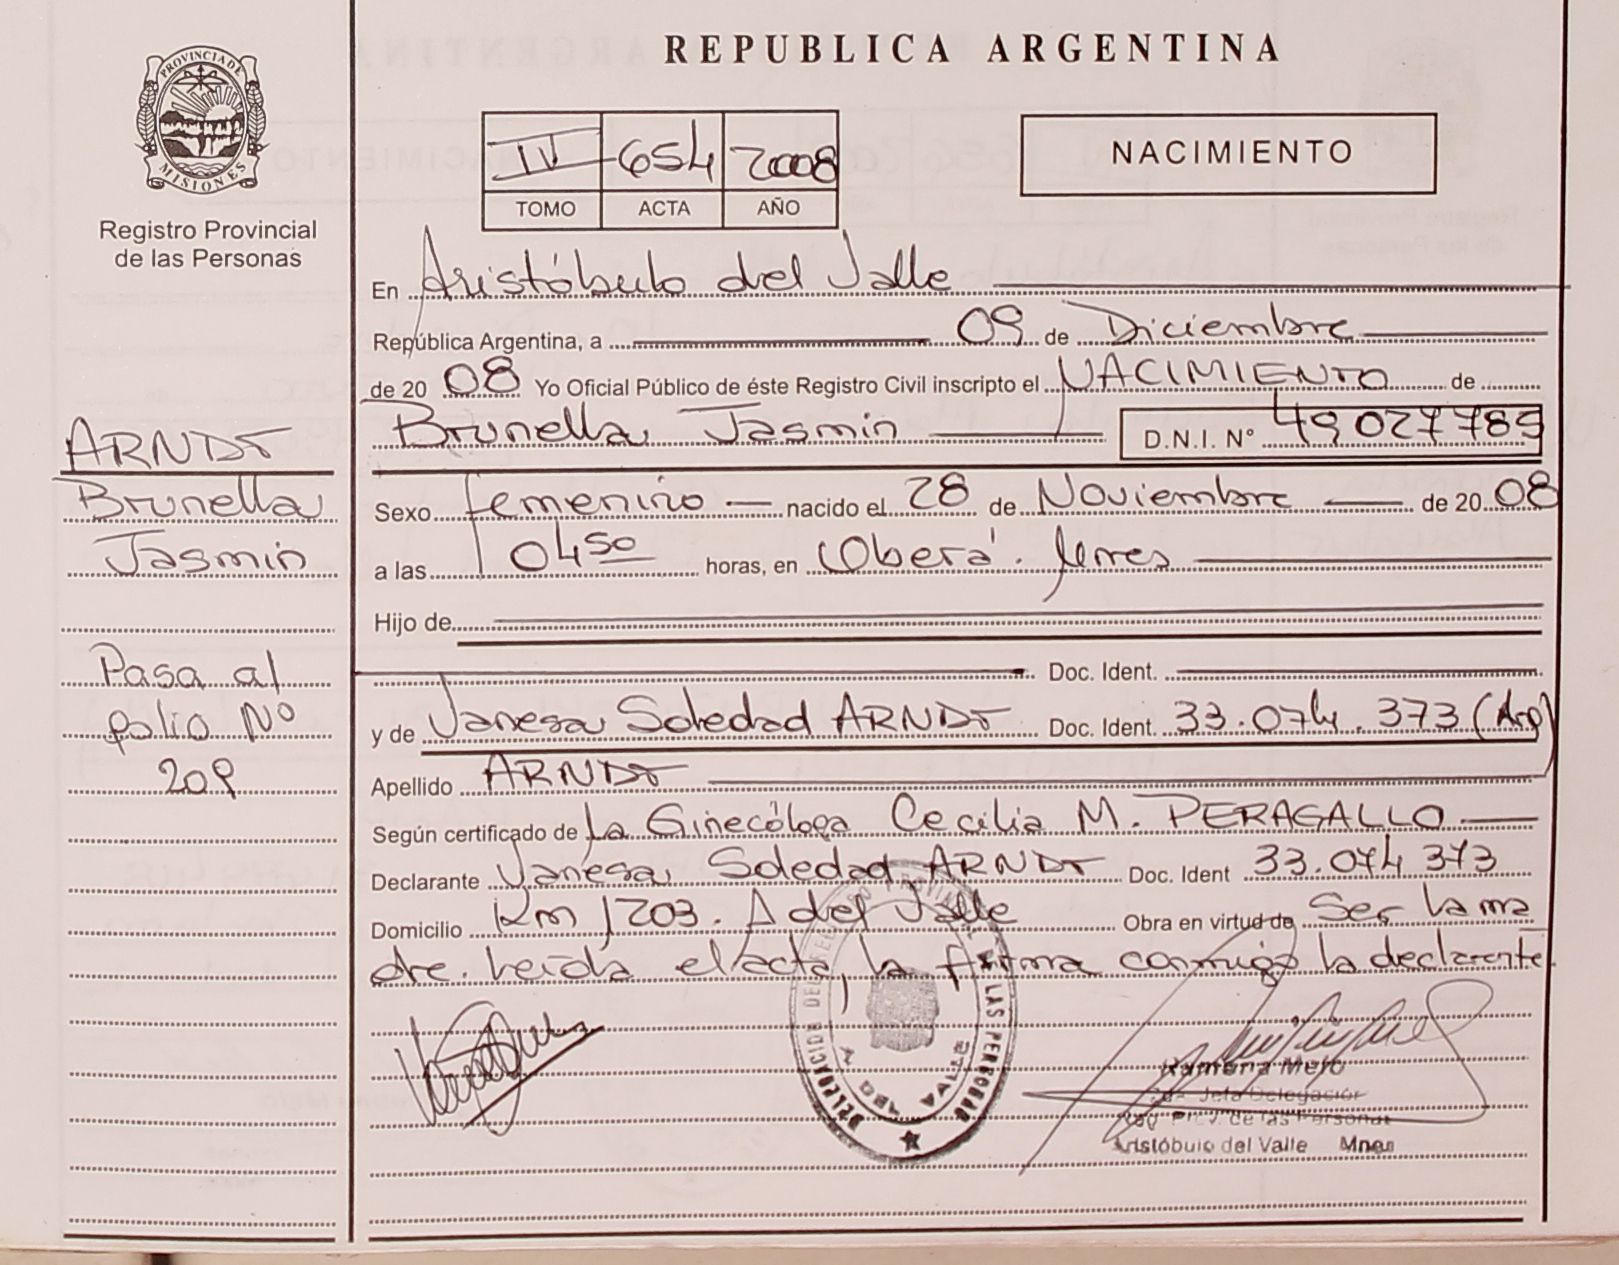 PROVINCIA DE
MISIONES
Registro Provincial
de las Personas
ARNDT
Brunella
Jasmin
Pasa al
folio Nº
209
REPUBLICA ARGENTINA
IV 654 2008
TOMO ACTA AÑO
NACIMIENTO
En Aristóbulo del Valle
República Argentina, a 09 de Diciembre
de 20 08 Yo Oficial Público de éste Registro Civil inscripto el NACIMIENTO de
Brunella Jasmin D.N.I. Nº 49027789
Sexo femenino nacido el 28 de Noviembre de 20 08
a las 04 50 horas, en Oberá. Mnes
Hijo de
Doc. Ident.
y de Vanesa Soledad ARNDT Doc. Ident. 33.074.373 (Arg)
Apellido ARNDT
Según certificado de La Ginecóloga Cecilia M. PERAGALLO
Declarante Vanesa Soledad ARNDT Doc. Ident 33.074 373
Domicilio Km 1203. A del Valle Obra en virtud de Ser la ma
dre. Leída el acta, la firma conmigo la declarante
DELEGACION DEL REGISTRO PROVINCIAL DE LAS PERSONAS
A. DEL VALLE
Jefa Delegación
de las Personas
Aristóbulo del Valle Mnes